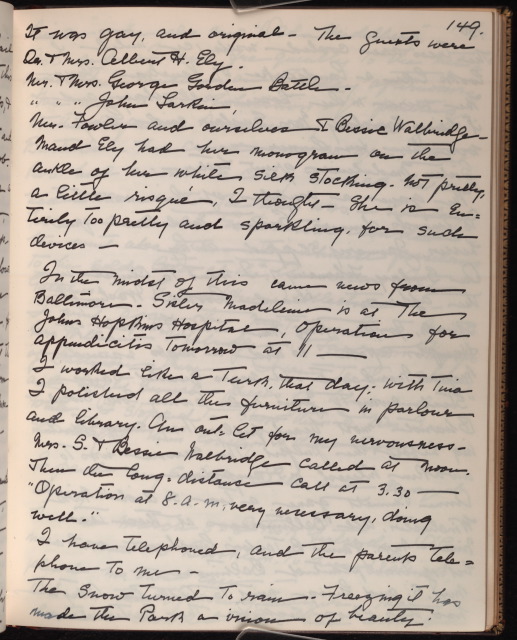 149.
It was gay, and original - The guests were
Dr. & Mrs. Albert H. Ely.
Mr. & Mrs. George Gordon Battle -
" " " John Larkin,
Mrs. Fowler and ourselves & Bessie Walbridge -
Maud Ely had her monogram on the
ankle of her white silk stocking - not pretty,
a little risqué, I thought - She is en=
tirely too pretty and sparkling, for such
devices -
In the midst of this came news from
Baltimore - Sister Madeleine is at The
Johns Hopkins Hospital, operation for
appendicitis tomorrow at 11 -
I worked like a Turk, that day; with Tina
I polished all the furniture in parlour
and library. An out-let for my nervousness -
Mrs. S. & Bessie Walbridge called at noon.
Then the long-distance call at 3.30 -
"Operation at 8.a.m, very necessary, doing
well."
I have telephoned, and the parents tele=
phone to me -
The snow turned to rain - Freezing it has
made the Park a vision of beauty!